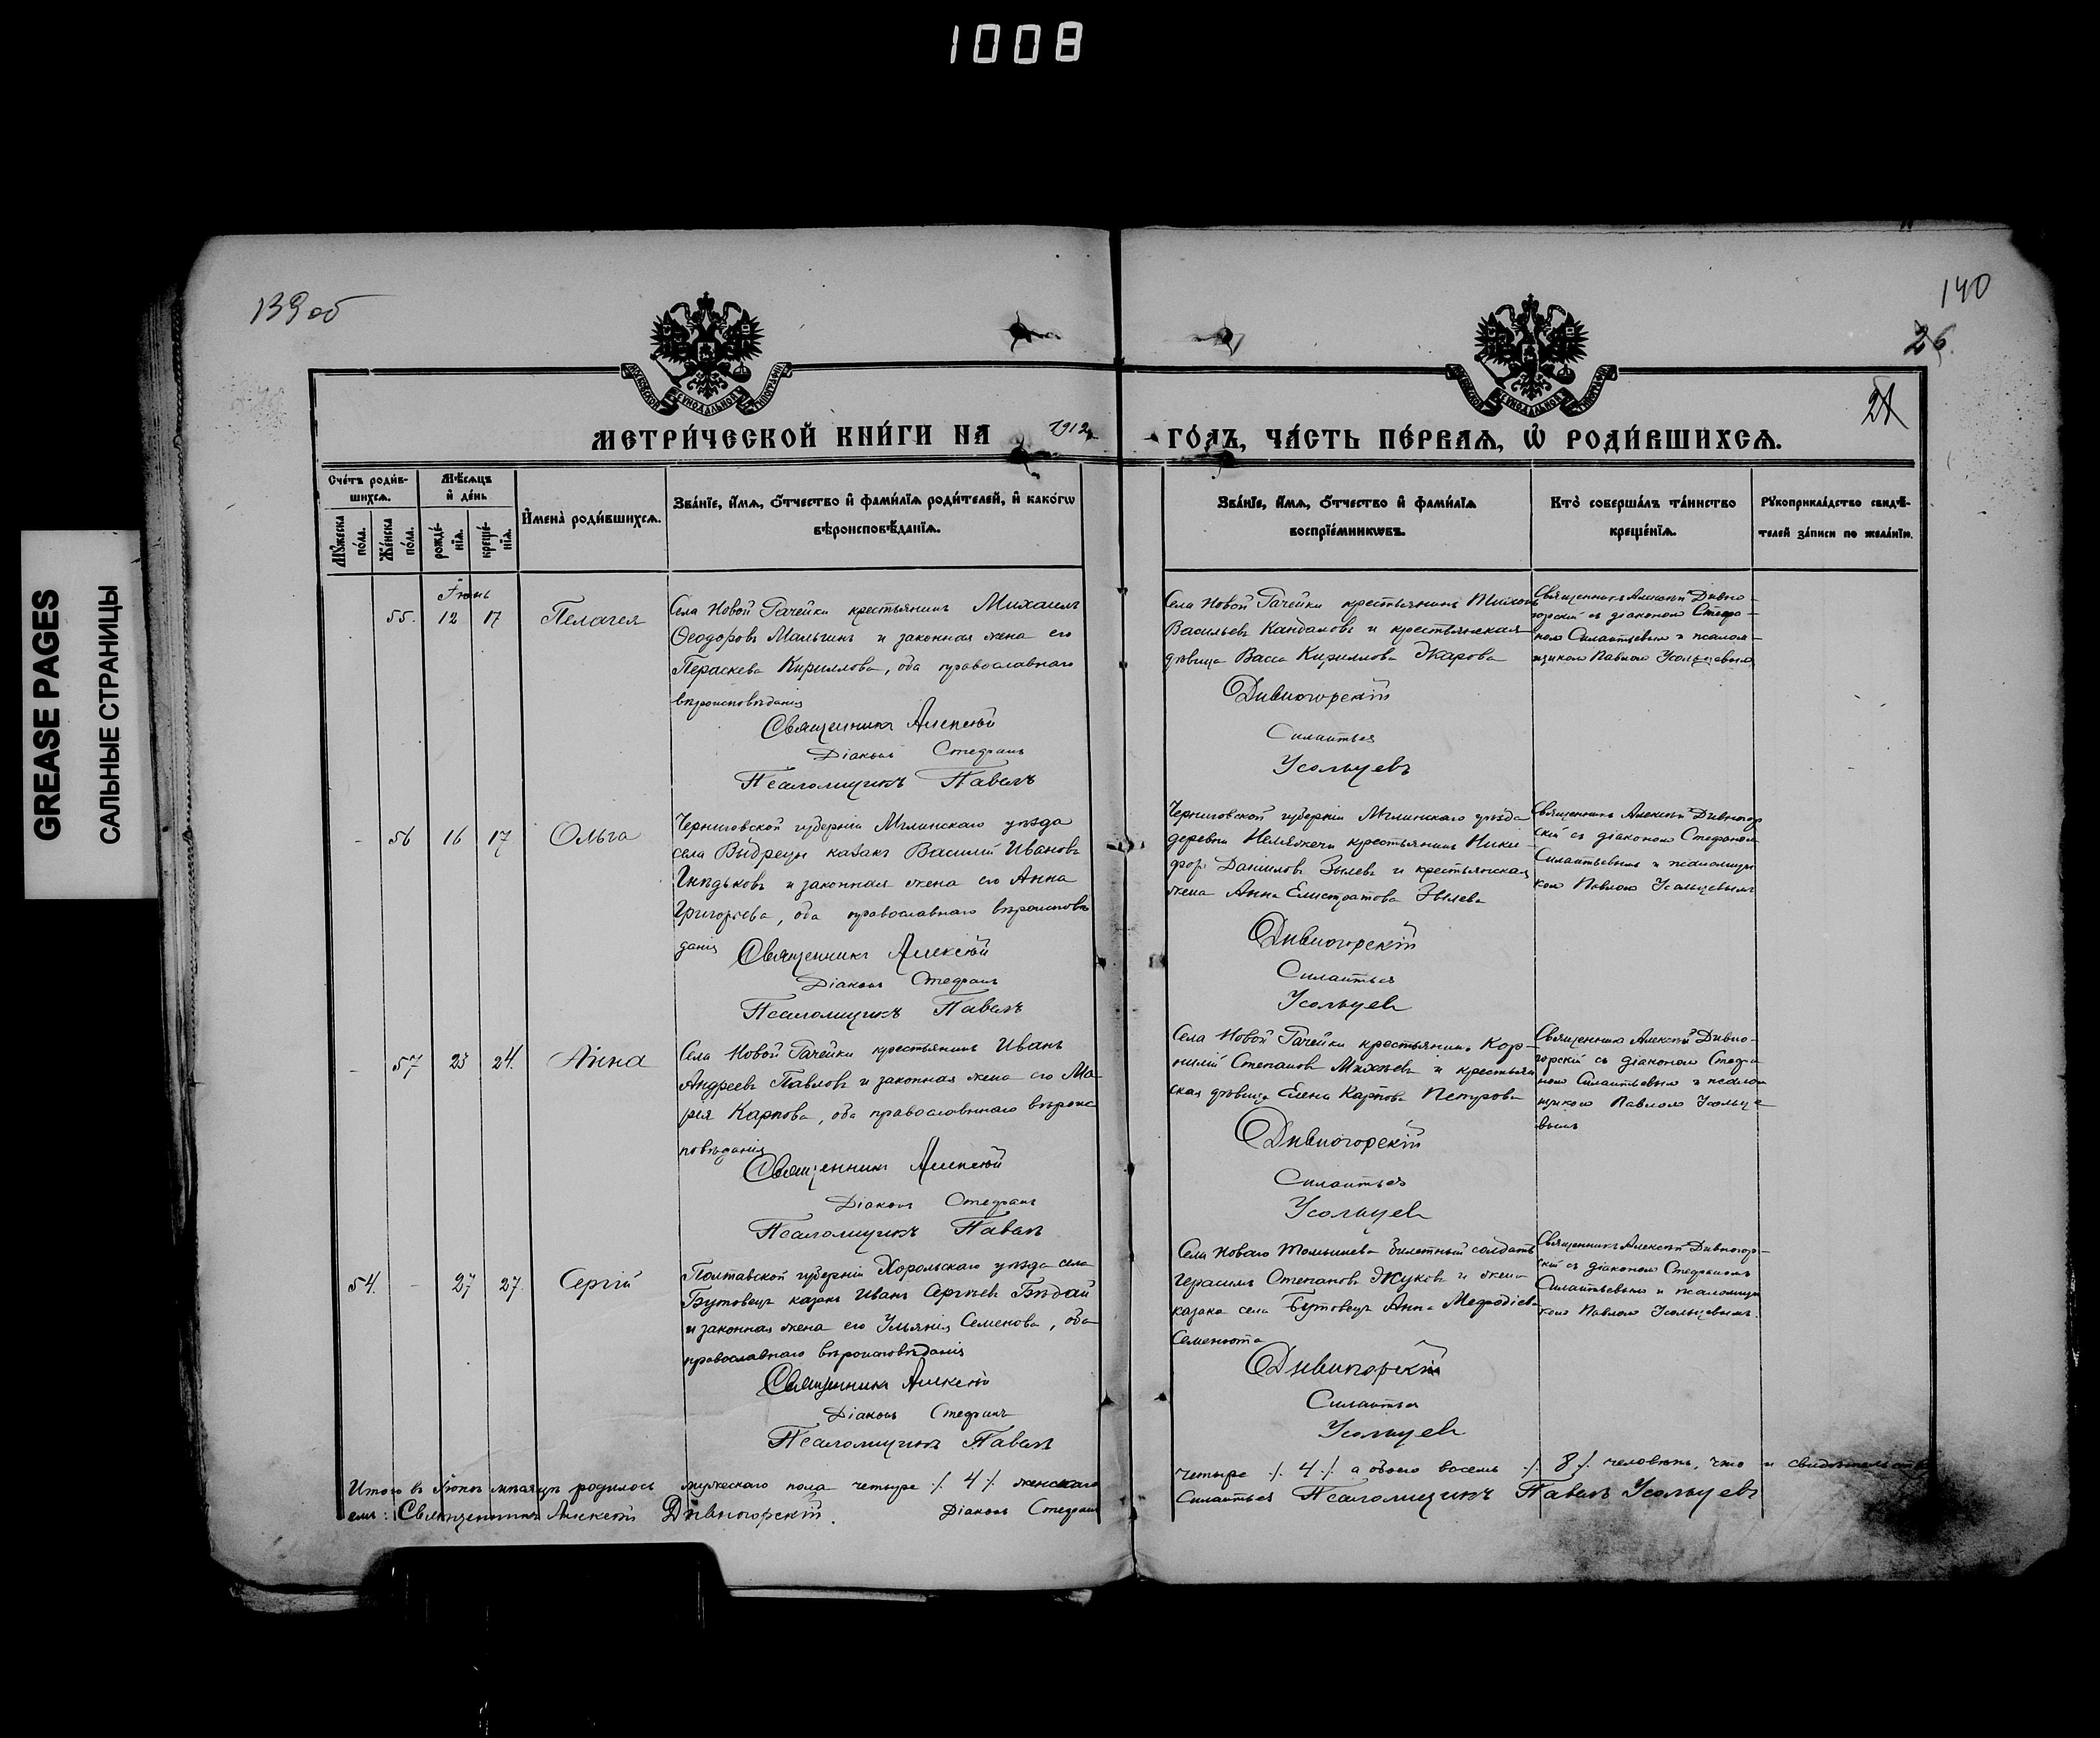 1008
GREASE PAGES
САЛЬНЫЕ СТРАНИЦЫ
139 об
140
26
21
МЕТРИ́ЧЕСКОЙ КНИ́ГИ НА 1912
ГО́ДЪ, ЧА́СТЬ ПЕ́РВАѦ, Ѡ РОДИ́ВШИХСѦ.
Сче́тъ роди́в-
шихсѧ.
Мѣ́сѧцъ
и де́нь
Мꙋ́жеска
по́ла.
Же́нска
по́ла.
рожде́-
нїѧ.
креще́-
нїѧ.
Имена̀ роди́вшихсѧ.
Зва́нїе, и́мѧ, ѻ́тчество и фами́лїѧ роди́телей, и како́гѡ
вѣроисповѣ́данїѧ.
Зва́нїе, и́мѧ, ѻ́тчество и фами́лїѧ
воспрїе́мникѡвъ.
Кто̀ соверша́лъ та́инство
креще́нїѧ.
Рꙋкоприкла́дство свидѣ́-
телей за́писи по жела́нїю.
Іюнь
55. 12 17 Пелагея
Села Новой Рачейки крестьянинъ Михаилъ
Ѳеодоровъ Малыгинъ и законная жена его
Пераскева Кириллова, оба православнаго
вѣроисповѣданія
Священникъ Алексѣй
Діаконъ Стефанъ
Псаломщикъ Павелъ
Села Новой Рачейки крестьянинъ Тихонъ
Васильевъ Кандаловъ и крестьянская
дѣвица Васса Кириллова Жарова
Дивногорскій
Силантьев
Усольцевъ
Священникъ Алексѣй Дивно-
горскій съ діакономъ Стефа-
номъ Силантьевымъ и псалом-
щикомъ Павломъ Усольцевымъ
- 56 16 17 Ольга
Черниговской губерніи Мглинскаго уѣзда
села Выдрецы казакъ Василій Ивановъ
Гнѣдьковъ и законная жена его Анна
Григорьева, оба православнаго вѣроисповѣ
данія
Священникъ Алексѣй
Діаконъ Стефанъ
Псаломщикъ Павелъ
Черниговской губерніи Мглинскаго уѣзда
деревни крестьянинъ Ники-
форъ Даниловъ Зылевъ и крестьянская
жена Анна Елистратова Зылева
Дивногорскій
Силантьев
Усольцев
Священникъ Алексѣй Дивногор
скій съ діакономъ Стефаномъ
Силантьевымъ и псаломщи
комъ Павломъ Усольцевымъ
- 57 23 24. Анна
Села Новой Рачейки крестьянинъ Иванъ
Андреевъ Павловъ и законная жена его Ма-
рія Карпова, оба православнаго вѣроис
повѣданія
Священникъ Алексѣй
Діаконъ Стефанъ
Псаломщикъ Павелъ
Села Новой Рачейки крестьянинъ Кор-
нилій Степановъ Михѣевъ и крестьян
ская дѣвица Елена Карпова Петрова
Дивногорскій
Силантьев
Усольцев
Священникъ Алексѣй Дивно-
горскій съ діакономъ Стефа
номъ Силантьевымъ и псалом
щикомъ Павломъ Усольце
вымъ
54. - 27 27. Сергій
Полтавской губерніи Хорольскаго уѣзда села
Бутовецъ казакъ Иванъ Сергѣевъ Бѣдай
и законная жена его Ульянія Семенова, оба
православнаго вѣроисповѣданія
Священникъ Алексѣй
Діаконъ Стефанъ
Псаломщикъ Павелъ
Села Новаго Томышева билетный солдатъ
Герасимъ Степановъ Жуковъ и жена
казака села Бутовецъ Анна Меѳодіева
Семенюта
Дивногорскій
Силантьев
Усольцев
Священникъ Алексѣй Дивногор-
скій съ діакономъ Стефаномъ
Силантьевымъ и псаломщи
комъ Павломъ Усольцевымъ.
Итого въ Іюнѣ мѣсяцѣ родилось мужескаго пола четыре ⁒ 4 ⁒ женскаго четыре ⁒ 4 ⁒ а обоего восемь ⁒ 8 ⁒ человѣкъ, что и свидѣтельству
емъ: Священникъ Алексѣй Дивногорскій. Діаконъ Стефанъ Силантьев Псаломщикъ Павелъ Усольцевъ